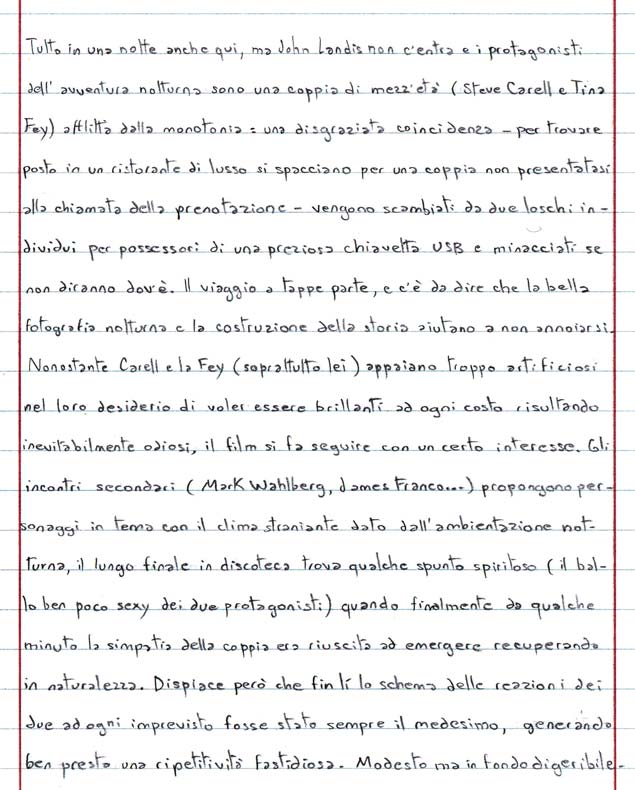 Tutto in una notte anche qui, ma John Landis non c'entra e i protagonisti
dell'avventura notturna sono una coppia di mezz'età (Steve Carell e Tina
Fey) afflitta dalla monotonia: una disgraziata coincidenza - per trovare
posto in un ristorante di lusso si spacciano per una coppia non presentatasi
alla chiamata della prenotazione - vengono scambiati da due loschi in-
dividui per possessori di una preziosa chiavetta USB e minacciati se
non diranno dov'è. Il viaggio a tappe parte, e c'è da dire che la bella
fotografia notturna e la costruzione della storia aiutano a non annoiarsi.
Nonostante Carell e la Fey (soprattutto lei) appaiano troppo artificiosi
nel loro desiderio di voler essere brillanti ad ogni costo risultando
inevitabilmente odiosi, il film si fa seguire con un certo interesse. Gli
incontri secondari (Mark Wahlberg, James Franco...) propongono per-
sonaggi in tema con il clima straniante dato dall'ambientazione not-
turna, il lungo finale in discoteca trova qualche spunto spiritoso (il bal-
lo ben poco sexy dei due protagonisti) quando finalmente da qualche
minuto la simpatia della coppia era riuscita ad emergere recuperando
in naturalezza. Dispiace però che fin lì lo schema delle reazioni dei
due ad ogni imprevisto fosse stato sempre il medesimo, generando
ben presto una ripetitività fastidiosa. Modesto ma in fondo digeribile.